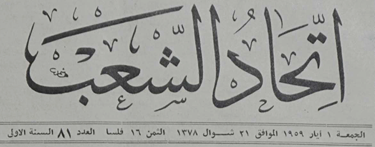 اتحاد الشعب
الجمعة ١ ايار ١٩٥٩ الموافق ٢١ شوال ١٣٧٨ الثمن ١٦ فلسا العدد ٨١ السنة الاولى